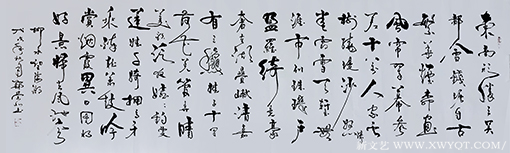 東南形勝三吴
都會錢塘自古
繁華煙柳畫橋
風簾翠幕參
差十萬人家雲
樹繞堤沙怒濤
卷霜雪天塹無
涯市列珠璣戶
盈羅綺競豪
奢重湖疊巘清嘉
有三秋桂子十里
荷花羌管弄晴
菱歌泛夜嬉嬉釣叟
蓮娃千騎擁高牙
乘醉聽簫鼓吟
賞煙霞異日圖將
好景歸去鳳池誇
柳永望海潮
新文艺 WWW.XWYQT.COM